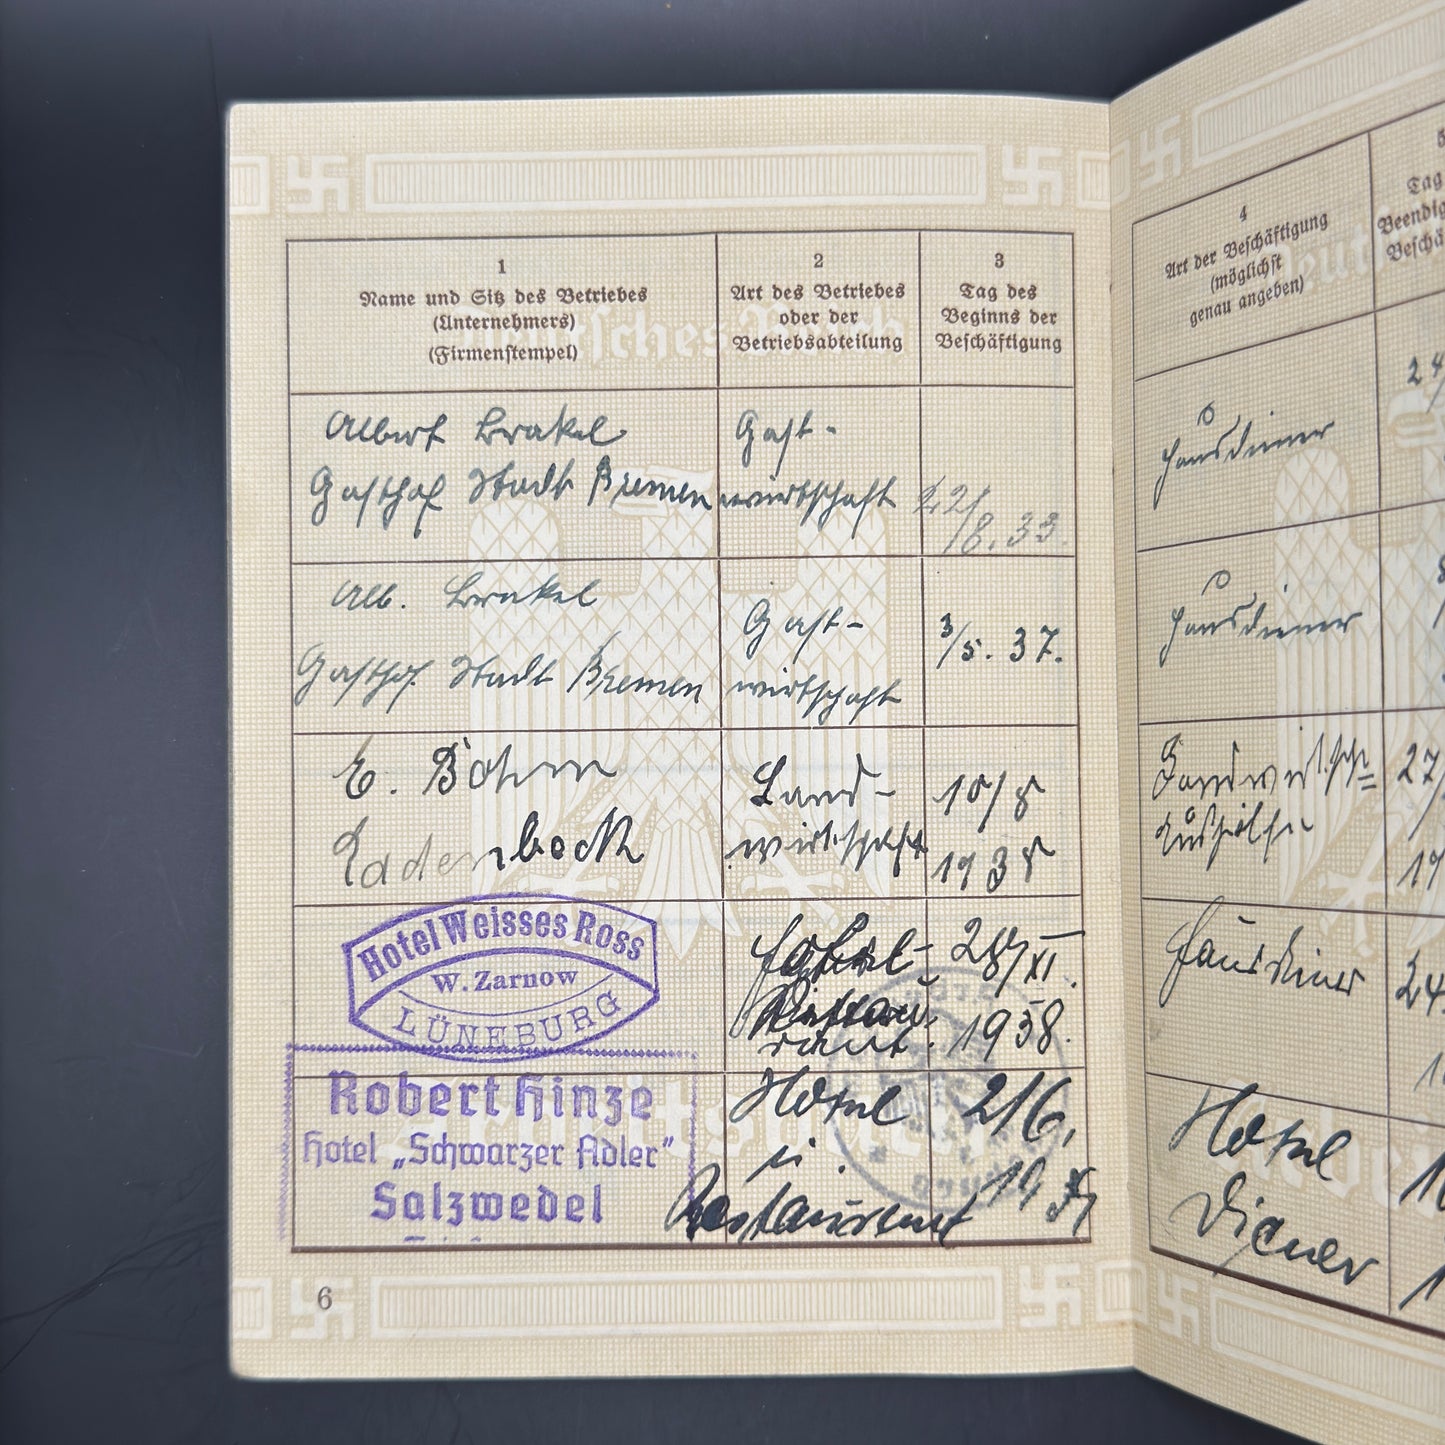 1
Name und Sitz des Betriebes
(Unternehmers)
(Firmenstempel)
2
Art des Betriebes
oder der
Betriebsabteilung
3
Tag des
Beginns der
Beschäftigung
Albert Brakel
Gasthof Stadt Bremen
Gast-
wirtschaft
22/8.33.
Alb. Brakel
Gasthof Stadt Bremen
Gast-
wirtschaft
3/5.37.
E. Böhm
Radenbeck
Land-
wirtschaft
10/8
1938
Hotel Weisses Ross
W. Zarnow
LÜNEBURG
Hotel-
Restau-
rant.
28/XI.
1938.
Robert Hinze
Hotel „Schwarzer Adler"
Salzwedel
Hotel
u.
Restaurant
2/6.
19
6
Deutsches Reich
Arbeitsbuch
4
Art der Beschäftigung
(möglichst
genau angeben)
5
Tag
Hausdiener
24
Hausdiener
Landwirtsch=
Aushilfe
27
19
Hausdiener
24
Hotel
Diener